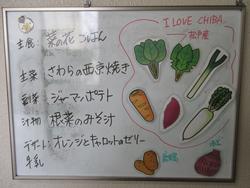 I LOVE CHIBA
松戸産
主食: 菜の花ごはん
主菜 さわらの西京焼き
副菜 ジャーマンポテト
汁物 根菜のみそ汁
デザート オレンジとキャロットのゼリー
牛乳